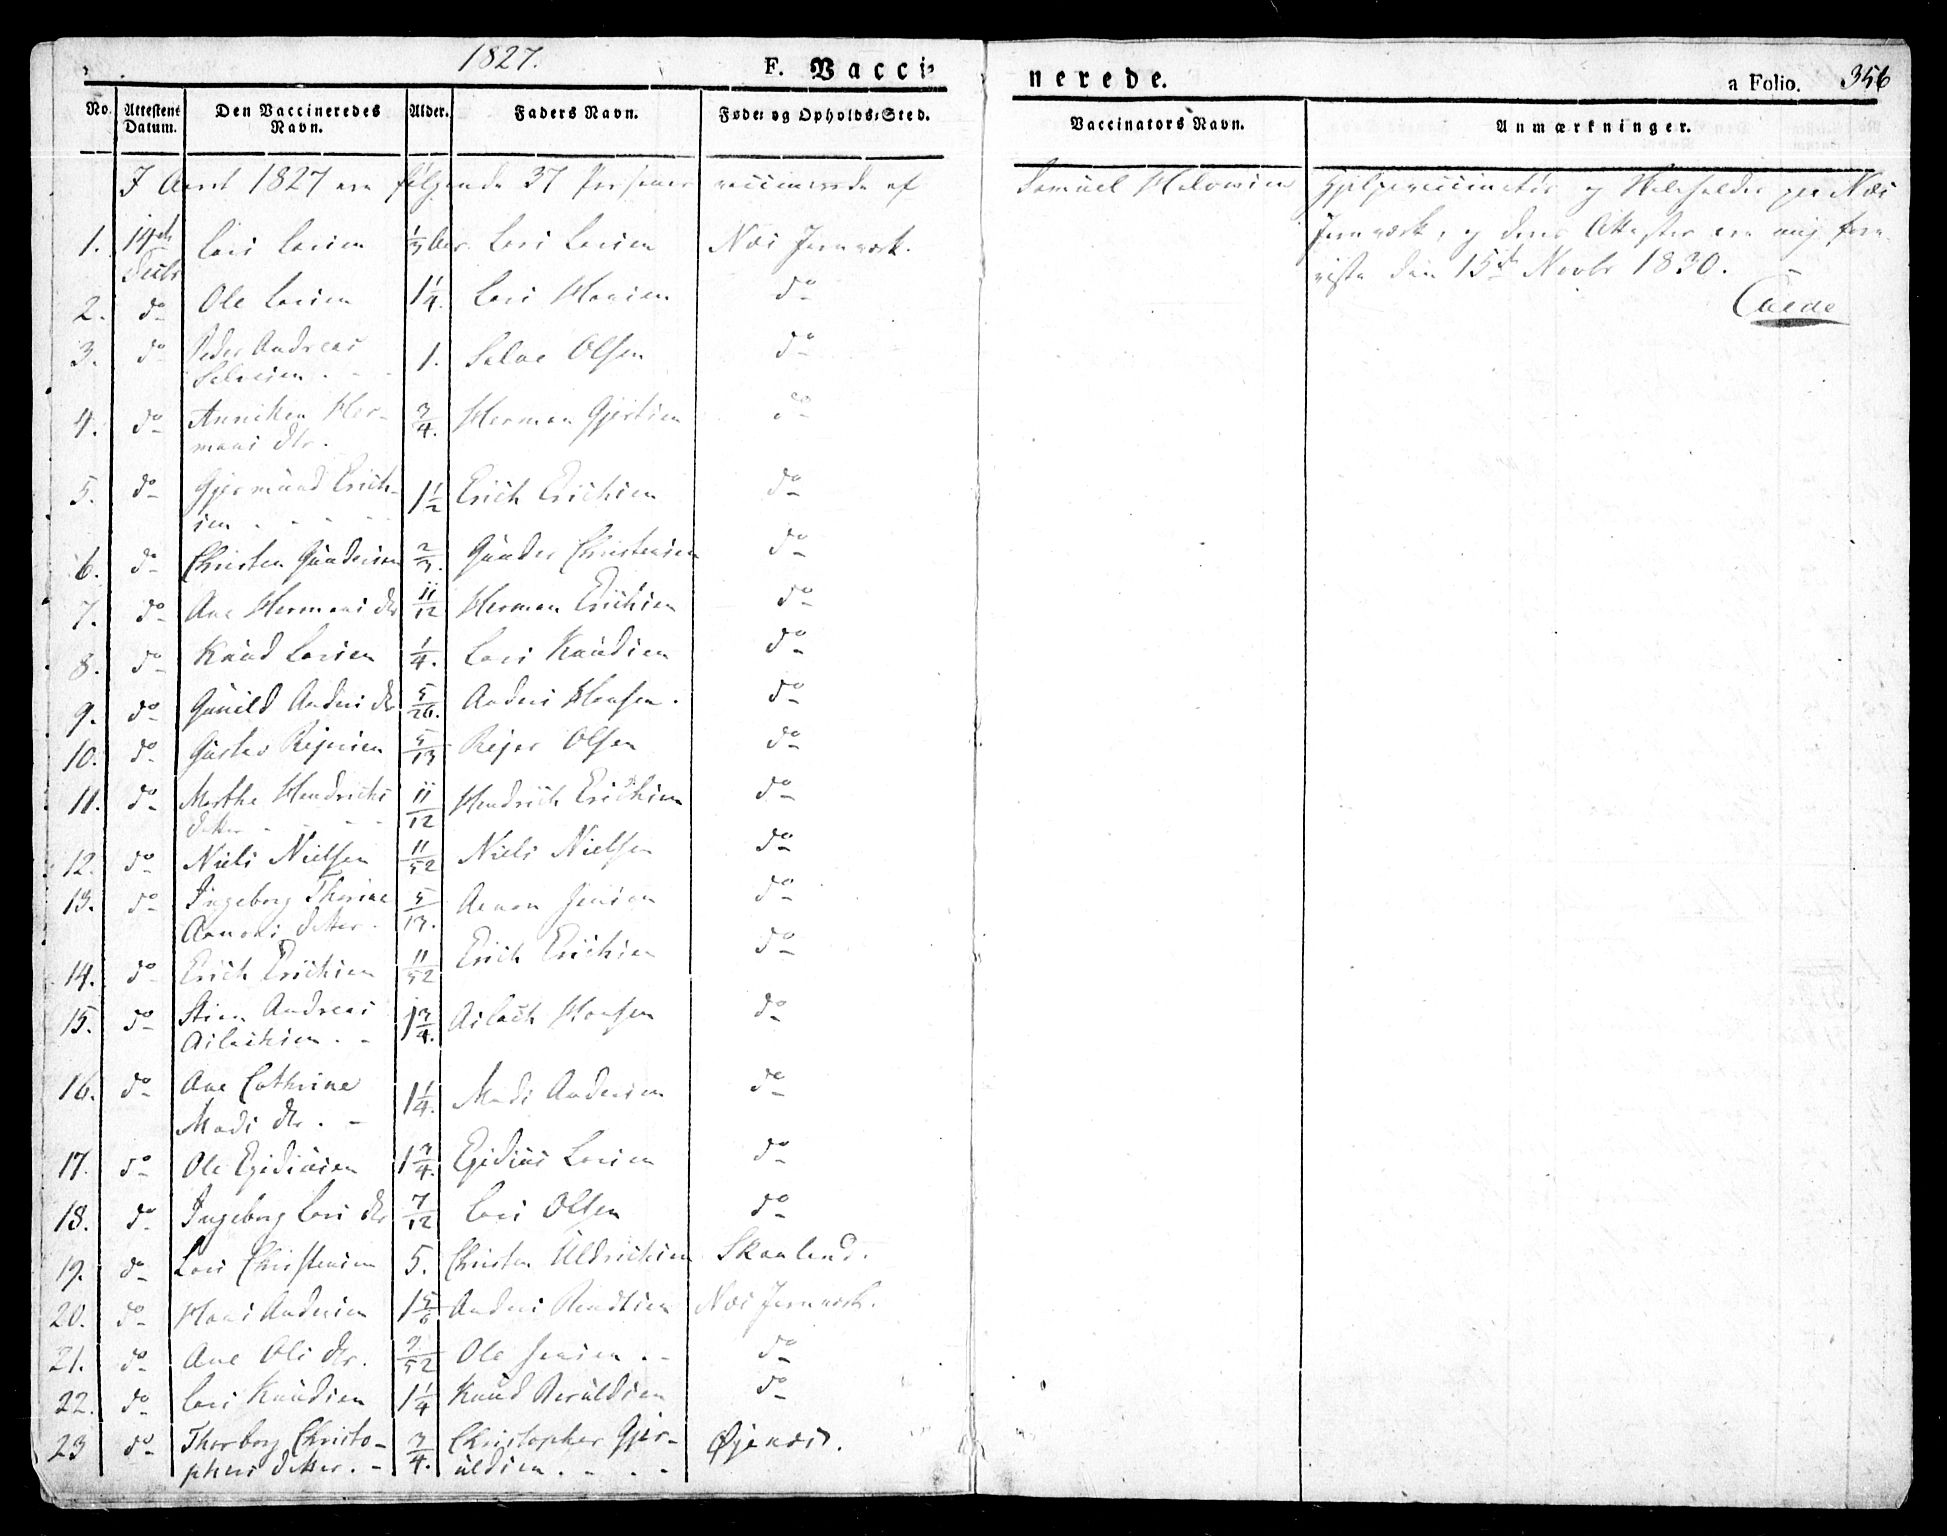 1827.
F. Vacci-
nerede.
a Folio. 356
No. Attestens Datum. Den Vaccineredes Navn. Alder. Faders Navn. Føde- og Opholds-Sted. Vaccinators Navn. Anmærkninger.
I Aaret 1827 ere følgende 37 Personer vaccinerede af Samuel Hjelpevaccinatør og paa Næs
Jernværk, og dens Attester ere mig fore-
viste den 15de Novbr 1830.
1. 14de Decbr Lars Larsen 1/3 Lars Larsen Næs Jernværk.
2. do Ole Larsen 1 1/4. Lars Hansen do
3. do Peder Andreas Salvesen. 1. Salve Olsen do
4. do Anniken Her-
mans dtr. 3/4. Herman Gjertsen do
5. do Gjermund Erich-
sen 1 1/2 Erich Erichsen do
6. do Christen Gundersen 2/3. Gunder Christensen do
7. do Ane Hermans dtr 11/12 Herman Erichsen do
8. do Knud Larsen 1/4. Lars Knudsen do
9. do Gunild Anders dtr 5/26. Anders Hansen. do
10. do Gustav Rejersen 5/13 Rejer Olsen do
11. do Marthe Hendrichs
datter 11/12 Hendrich Erichsen do
12. do Niels Nielsen 11/52 Niels Nielsen do
13. do Ingeborg Thorine
Aanons datter. 5/13. Aanon Jensen do
14. do Erich Erichsen 11/52 Erich Erichsen do
15. do Stien Andreas
Ailachsen. 1 3/4. Ailach Hansen do
16. do Ane Cathrine
Mads dtr. 1 1/4. Mads Andersen do
17. do Ole Egidiusen 1 3/4. Egidius Larsen do
18. do Ingeborg Lars dtr 7/12 Lars Olsen do
19. do Lars Christensen 5. Christen Uldrichsen Skaaland.
20. do Hans Andersen 1 5/6 Anders Næs Jernværk.
21. do Ane Ols dtr. 9/52 Ole Jensen. do
22. do Lars Knudsen 1 1/4 Knud do
23 do Thorborg Christo-
phers datter. 3/4. Christopher Gjer-
uldsen. Øjenæs.